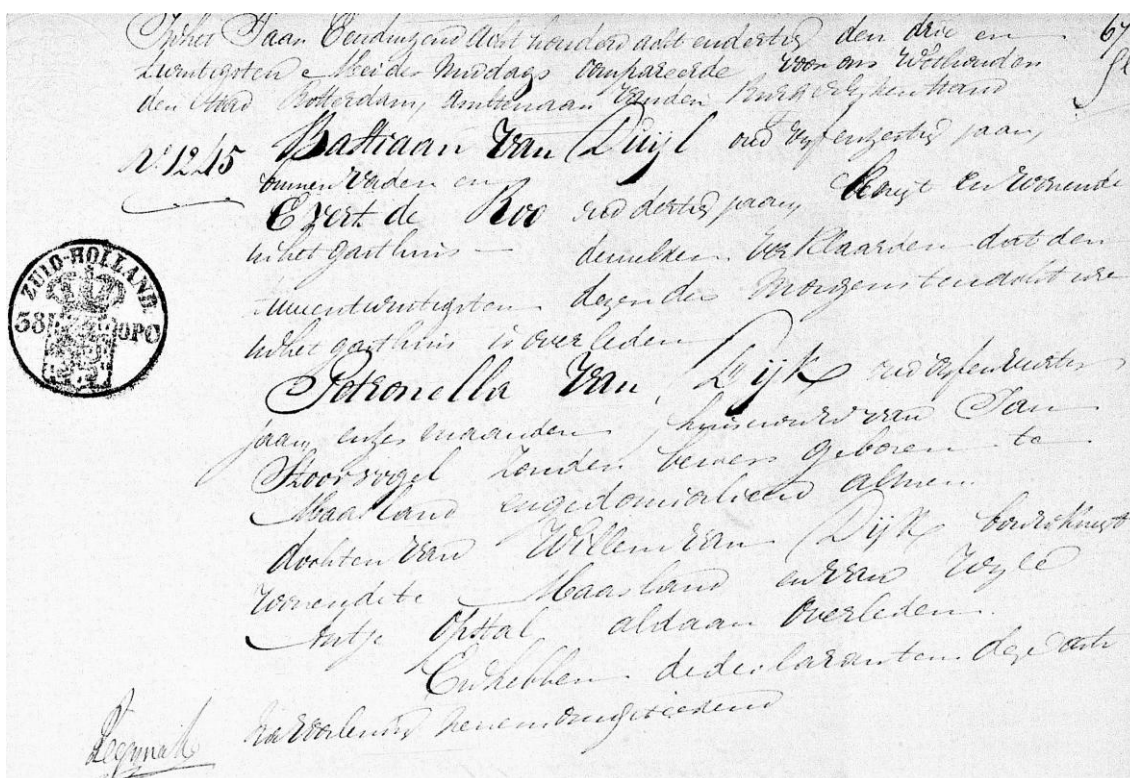 In het Jaar Eenduizend acht honderd acht en dertig den drie en
twintigsten Mei des middags compareerde voor ons Wethouder
der Stad Rotterdam, Ambtenaar van den Burgerlijken stand
67
N: 1245 Bastiaan van Duijl oud vyf en zestig jaar,
binnenvader en
Evert de Roo oud dertig jaar, en wonende
in het gasthuis dewelken verklaarden dat den
tweeentwintigsten dezer des morgens ten acht ure
in het gasthuis is overleden
Petronella van Dijk oud vyf en
jaar, en zes maanden, huisvrouw van Jan
zonder beroep geboren te
Maasland en gedomicilieerd alhier
dochter van Willem van Dijk bouwknegt
wonende te Maasland en van wyle
Antje Opstal aldaar overleden
En hebben de declaranten deze acte
na voorlezing nevens ons geteekend
ZUID-HOLLAND
38 OPC